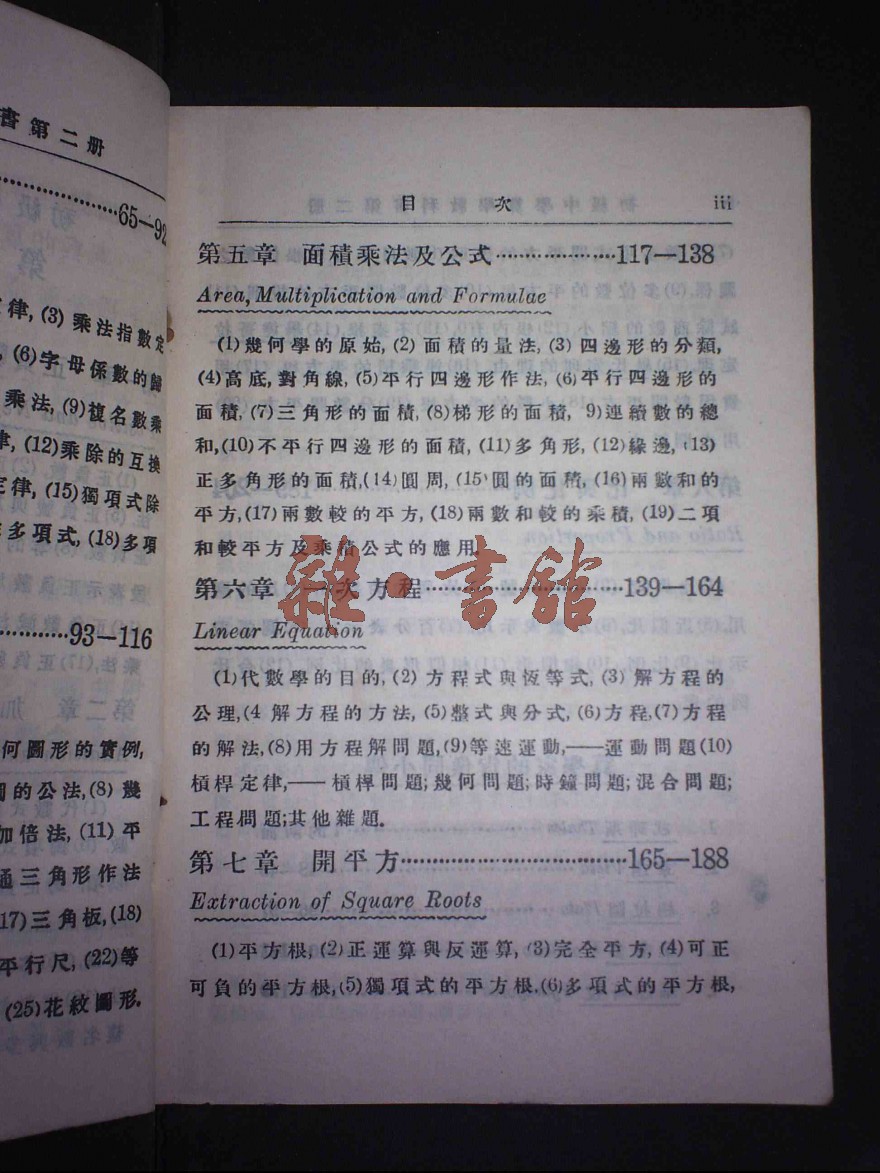 書第二册
65—92
定律, (3) 乘法指數定
, (6)字母係數的歸
乘法, (9)複名數乘
律, (12)乘除的互換
定律, (15)獨項式除
多項式, (18)多項
93—116
何圖形的實例,
的公法,(8) 幾
加倍法, (11) 平
通三角形作法
17)三角板,(18)
平行尺, (22)等
(25)花紋圖形.
目 次 iii
第五章 面積乘法及公式 117—138
Area, Multiplication and Formulae
(1)幾何學的原始, (2) 面積的量法, (3) 四邊形的分類,
(4)高底, 對角線, (5)平行四邊形作法, (6)平行四邊形的
面積, (7)三角形的面積, (8)梯形的面積, 9)連續數的總
和,(10)不平行四邊形的面積, (11)多角形, (12)緣邊, (13)
正多角形的面積,(14)圓周, (15)圓的面積, (16)兩數和的
平方,(17)兩數較的平方, (18)兩數和較的乘積, (19)二項
和較平方及乘積公式的應用.
第六章 一次方程 139—164
Linear Equation
(1)代數學的目的, (2) 方程式與恆等式, (3) 解方程的
公理,(4 解方程的方法, (5)整式與分式, (6)方程,(7)方程
的解法,(8)用方程解問題,(9)等速運動,——運動問題(10)
槓桿定律,——槓桿問題;幾何問題;時鐘問題;混合問題;
工程問題;其他雜題.
第七章 開平方 165—188
Extraction of Square Roots
(1)平方根, (2)正運算與反運算, (3)完全平方, (4)可正
可負的平方根,(5)獨項式的平方根.(6)多項式的平方根,
雜·書館